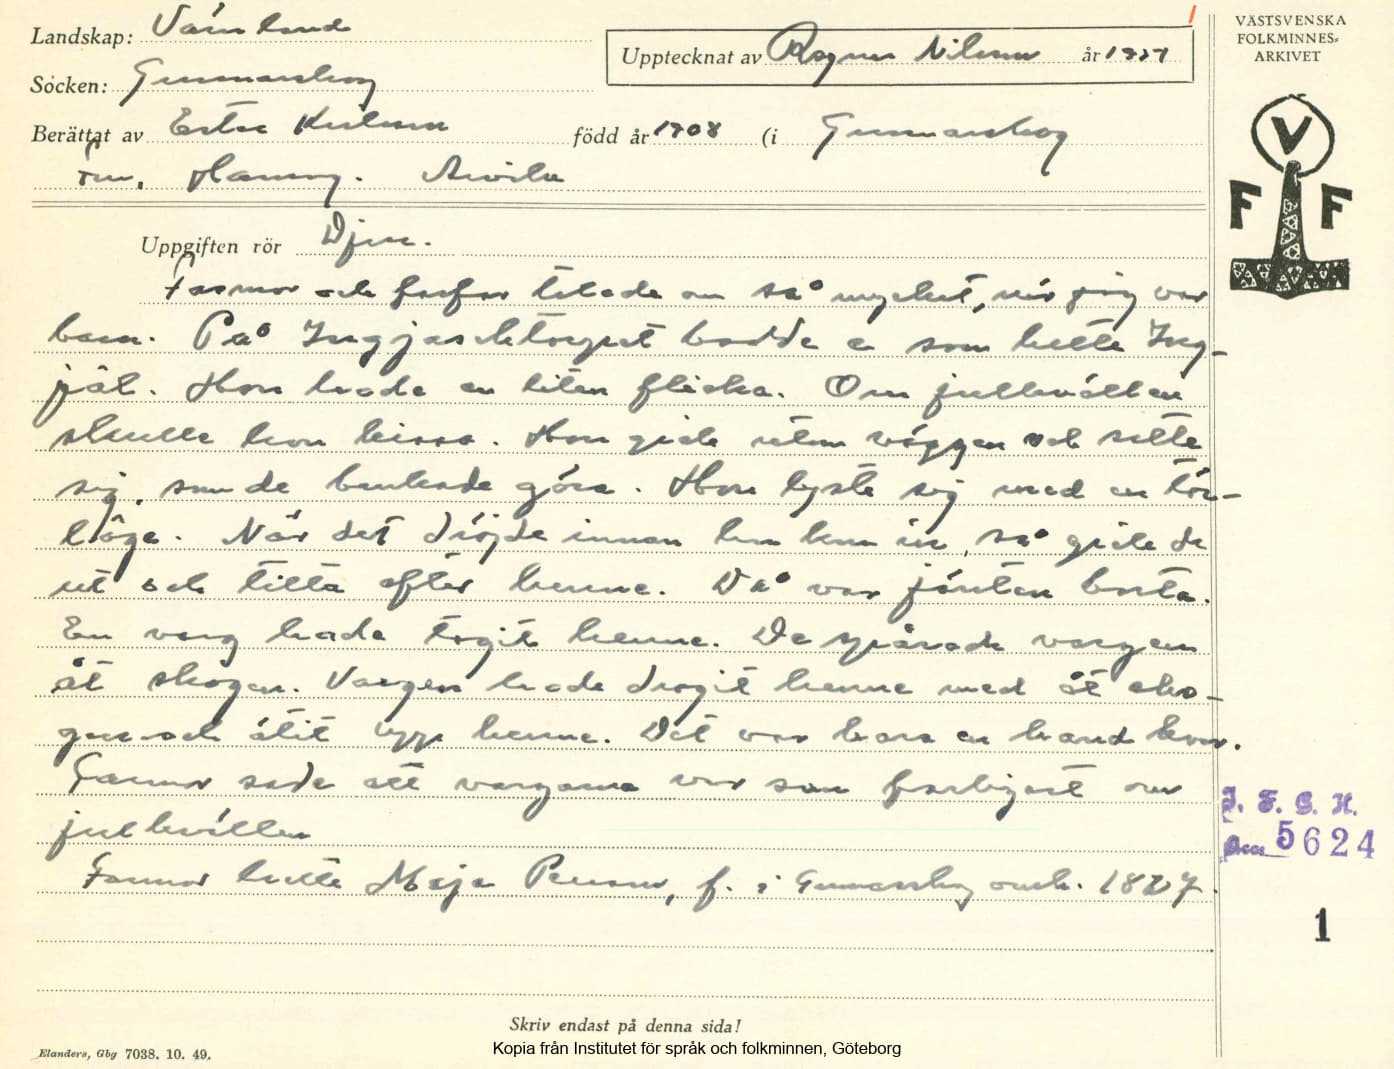 Landskap: Värmland
Upptecknat av Ragnar Nilsson år 1957
VÄSTSVENSKA
FOLKMINNES-
ARKIVET
Socken: Gunnarskog
Berättat av Ester född år 1908 (i Gunnarskog
Arvika
V
F F
Uppgiften rör Djur.
Farmor och farfar talade om så mycket, när jag var
barn. På Ingjaschtorpet bodde e som hette Ing-
jäl. Hon hade en liten flicka. Om julkvällen
skulle hon kissa. Hon gick utom väggen och satte
sig, som de brukade göra. Hon lyste sig med en tör-
låga. När det dröjde innan hon kom in, så gick de
ut och titta efter henne. Då var jäntan borta.
En varg hade tagit henne. De spårade vargen
åt skogen. Vargen hade dragit henne med åt sko-
gen och ätit upp henne. Det var bara en hand kvar.
Farmor sade att vargarna var som farligast om
julkvällen
Farmor hette Maja Persson, f. i Gunnarskog omkr. 1827.
I. F. G. H.
Acc. 5624
1
Skriv endast på denna sida!
Elanders, Gbg 7038. 10. 49.
Kopia från Institutet för språk och folkminnen, Göteborg